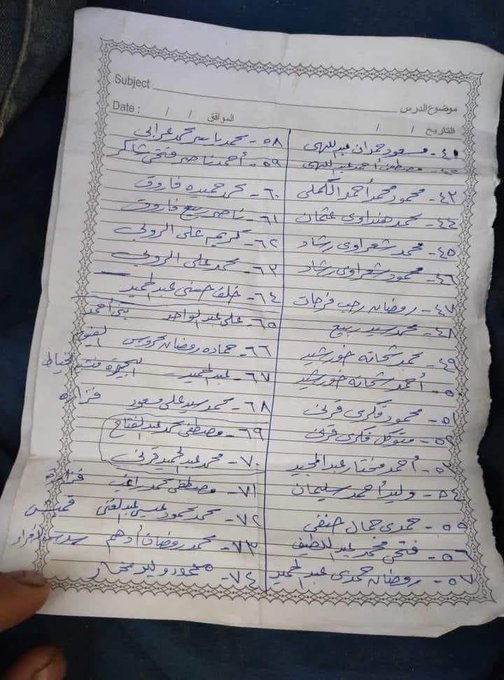 Subject موضوع الدرس
Date : / / الموافق / / التاريخ
٤١- مسعود حمدان عبدالهى
مصطفى احمد عبدالهى
٤٣- محمود محمد احمد الكملى
٤٤- محمد هنداوى عثمان
٤٥- محمد شعراوى رشاد
٤٦- محمود شعراوى رشاد
٤٧- رمضان رجب فرجات
٤٨- محمد سيد ربيع
٤٩- محمد شحاته خورشيد
٥٠- احمد شحاته خورشيد
٥١- محمود فكرى قرنى
٥٢- متوكل فكرى قرنى
٥٣- أحمد مختار عبد المجيد
٥٤- وليد أحمد سليمان
٥٥- حمدى جمال حنفى
٥٦- فتحى محمد عبد اللطيف
٥٧- رمضان حمدى عبد الحميد
٥٨- محمد ناصر محمد غرابى
٥٩- أحمد ناصر فتحى شاكر
٦٠- محمد حميده فاروق
٦١- ناصر ربيع فاروق
٦٢- كريم على الروبى
٦٣- محمد على الروبى
٦٤- خلف حسنى عبد الحميد
٦٥- على عبد الواحد
٦٦- حماده رمضان محروس
٦٧- عبد الحميد
٦٨- محمد سيد على مسعود فزاره
٦٩- مصطفى محمد عبد الفتاح
٧٠- محمد عبد الحميد قرنى
٧١- مصطفى محمد راغب
٧٢- محمد محمود عيسى عبد الغنى
٧٣- محمد رمضان أدهم
٧٤- محمود وليد مختار